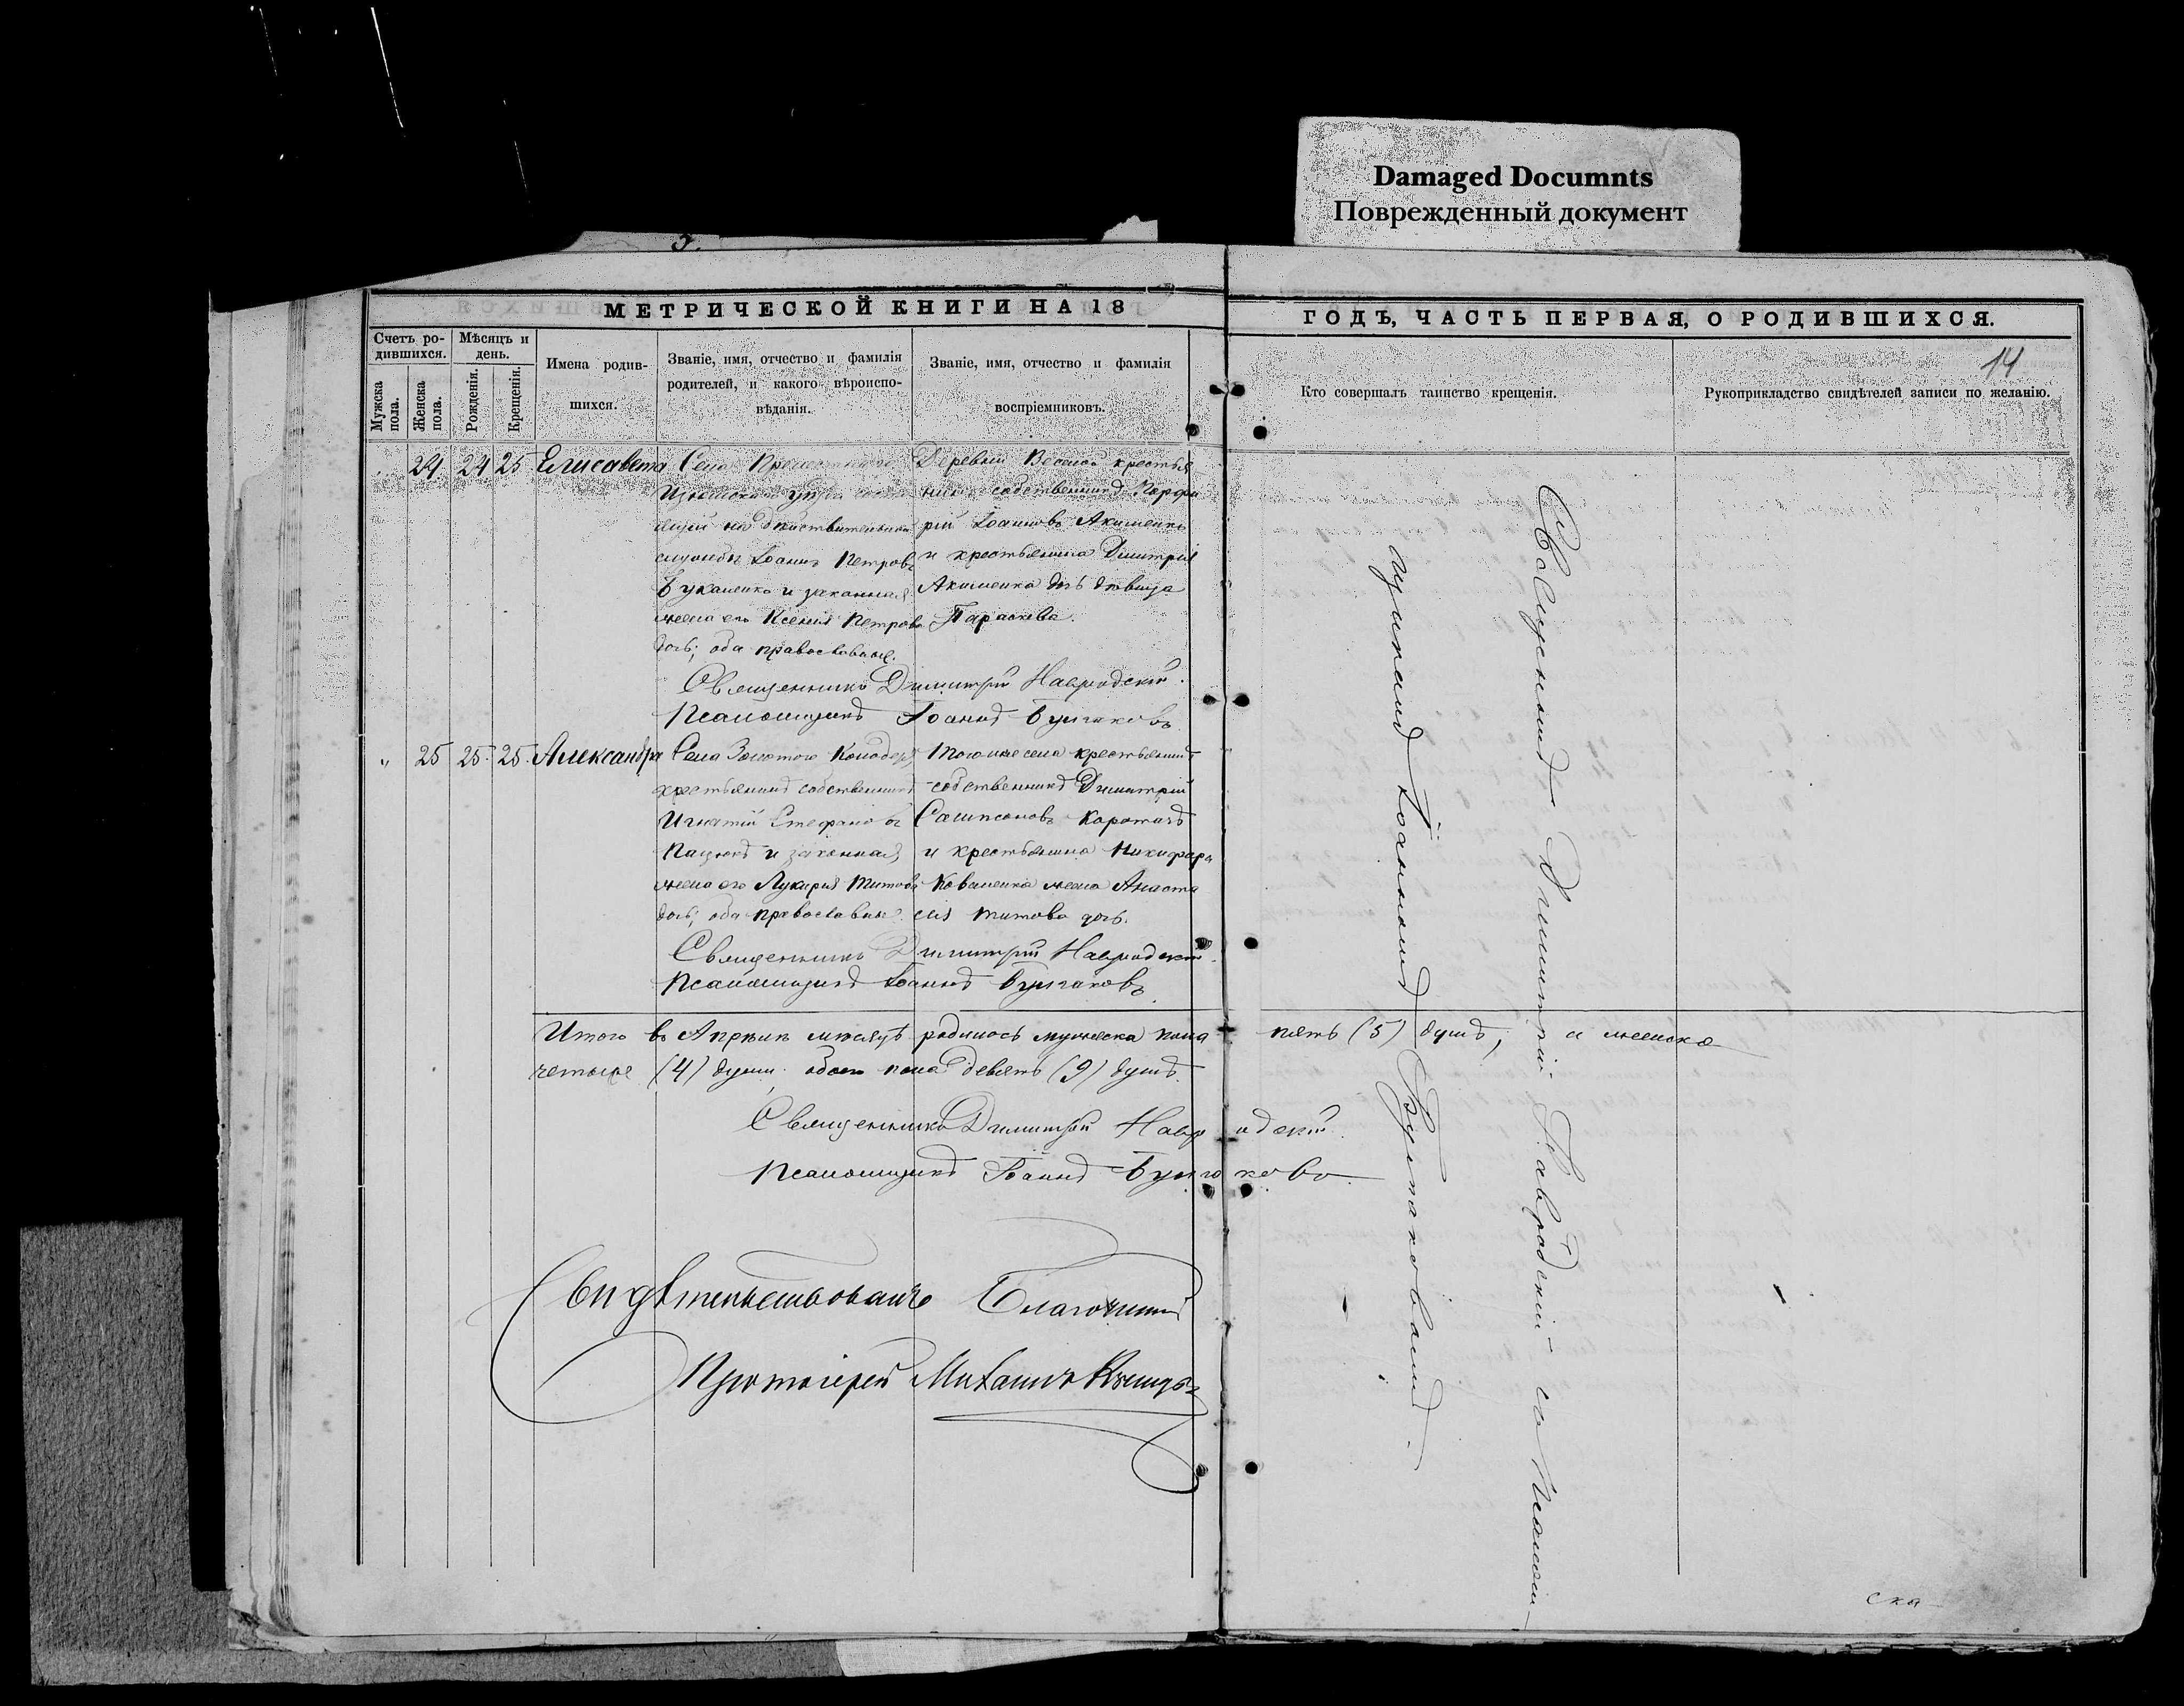 Damaged Documnts
Поврежденный документ
МЕТРИЧЕСКОЙ КНИГИ НА 18
ГОДЪ, ЧАСТЬ ПЕРВАЯ, О РОДИВШИХСЯ.
14
Счетъ ро-
дившихся.
Мужска пола.
Женска пола.
Мѣсяцъ и
день.
Рожденія.
Крещенія.
Имена родив-
шихся.
Званіе, имя, отчество и фамилія
родителей, и какого вѣроиспо-
вѣданія.
Званіе, имя, отчество и фамилія
воспріемниковъ.
Кто совершалъ таинство крещенія.
Рукоприкладство свидѣтелей записи по желанію.
24 24 25 Елисавета
Села
на дѣйствительной
службѣ Іоаннъ Петровъ
и законная
жена его Ксенія Петрова
дочь; оба православные.
Деревни Веселой крестья
нинъ собственникъ Порфи
рій Іоанновъ Акименко
и крестьянина Димитрія
Акименка дочь дѣвица
Параскева.
Священникъ Димитрій Навродскій.
Псаломщикъ Іоаннъ Булгаковъ
" 25 25. 25. Александра
Села Золотого Колодезя
крестьянинъ собственникъ
Игнатій Стефановъ
Пацюкъ и законная
жена его Лукерія Титова
дочь; оба православные.
Того же села крестьянинъ
собственникъ Димитрій
Сампсоновъ
и крестьянина Никифора
Коваленка жена Анаста
сія Титова дочь.
Священникъ Димитрій Навродскій.
Псаломщикъ Іоаннъ Булгаковъ.
Итого въ Апрѣлѣ мѣсяцѣ родилось мужеска пола пять (5) душъ, а женска
четыре (4) души. обоего пола девять (9) душъ.
Священникъ Димитрій Навродскій.
Псаломщикъ Іоаннъ Булгаковъ.
Благочинный
Протоіерей Михаилъ
Священникъ Димитрій Навродскій съ Псалом-
щикомъ Іоанномъ Булгаковымъ.
ска